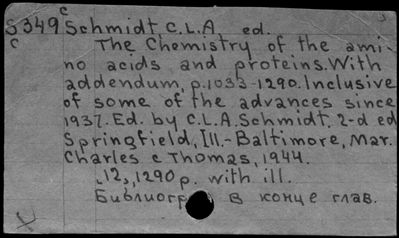 c
S349 Schmidt C.L.A. ed.
c The Chemistry of the ami-
no acids and proteins. With
addendum, p.1033-1290. Inclusive
of some of the advances since
1937. Ed. by C.L.A. Schmidt. 2-d ed
Springfield, Ill.-Baltimore, Mar.
Charles c Thomas, 1944.
12, 1290 p. with ill.
в конце глав.